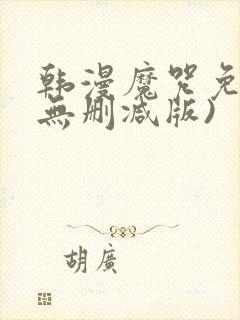 韩漫魔咒免
無删减版)
胡廣